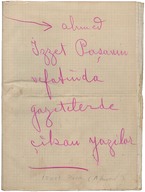 ahmed
İzzet Paşanın
vefatında
gazetelerde
çıkan yazılar